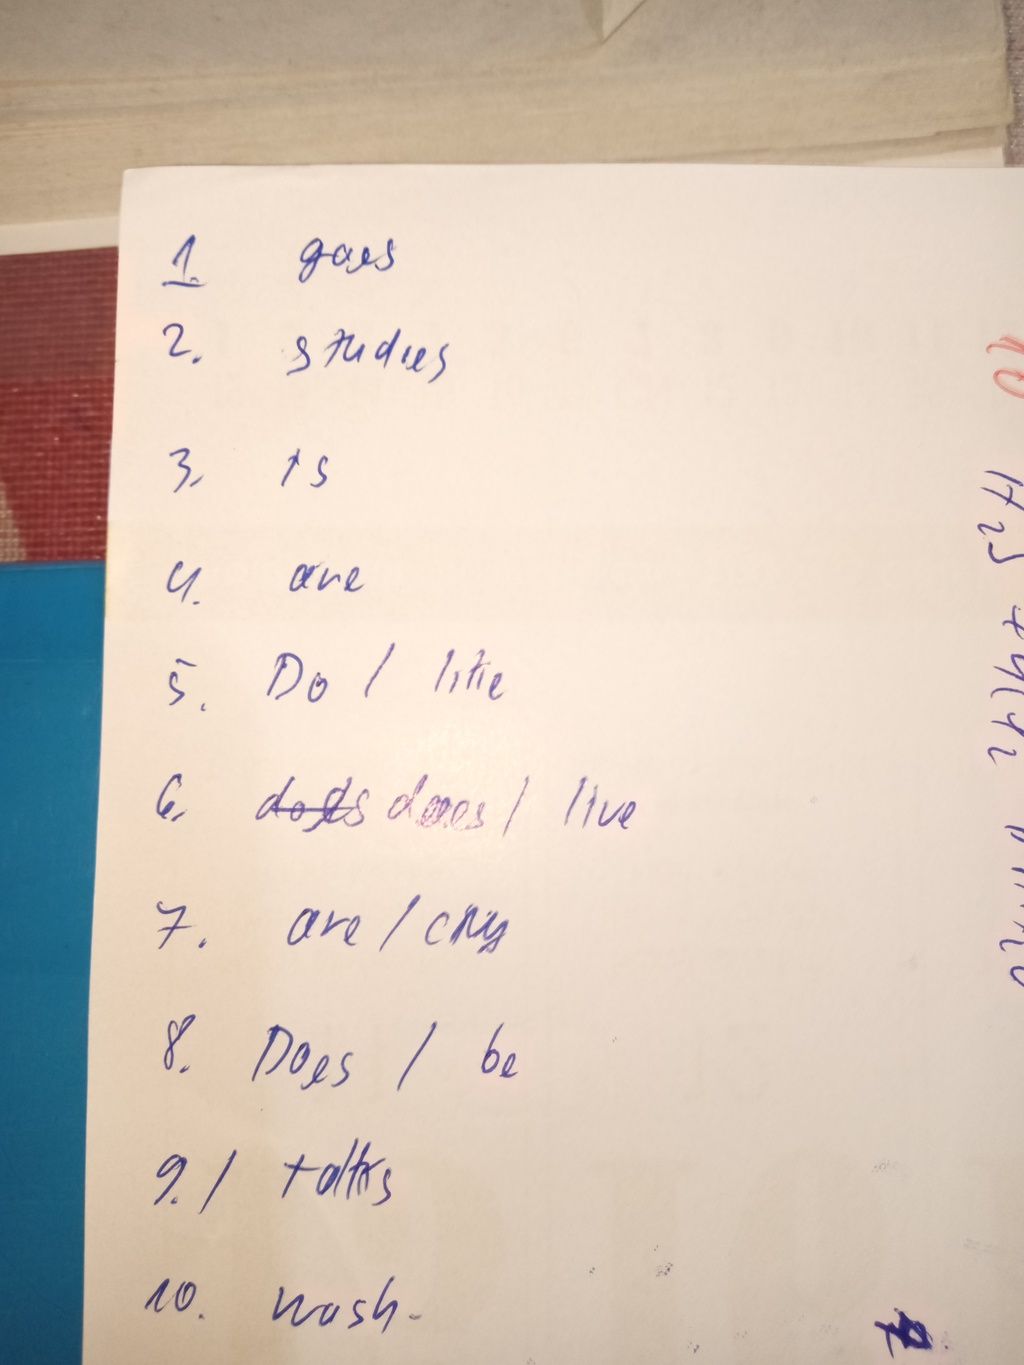 1. goes
2. studies
3. is
4. are
5. Do / like
6. does does / live
7. are / cry
8. Does / be
9. / talks
10. wash.
10